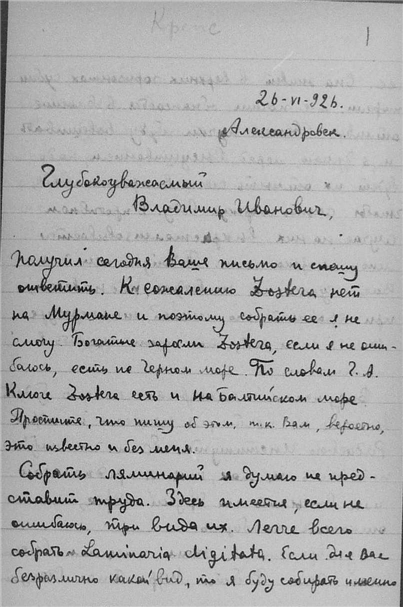 Крепс
1
26-VI-926.
Александровск.
Глубокоуважаемый
Владимир Иванович,
получил сегодня Ваше письмо и спешу
ответить. К сожалению Zostera нет
на Мурмане и поэтому собрать ее я не
смогу Богатые заросли Zostera, если я не оши-
баюсь, есть на Черном море. По словам Г. А.
Клюге Zostera есть и на Балтийском море
Простите, что пишу об этом, т.к. Вам, вероятно,
это известно и без меня.
Собрать ляминарий я думаю не пред-
ставит труда. Здесь имеется, если не
ошибаюсь, три вида их. Легче всего
собрать Laminaria digitata. Если для Вас
безразлично какой вид, то я буду собирать именно